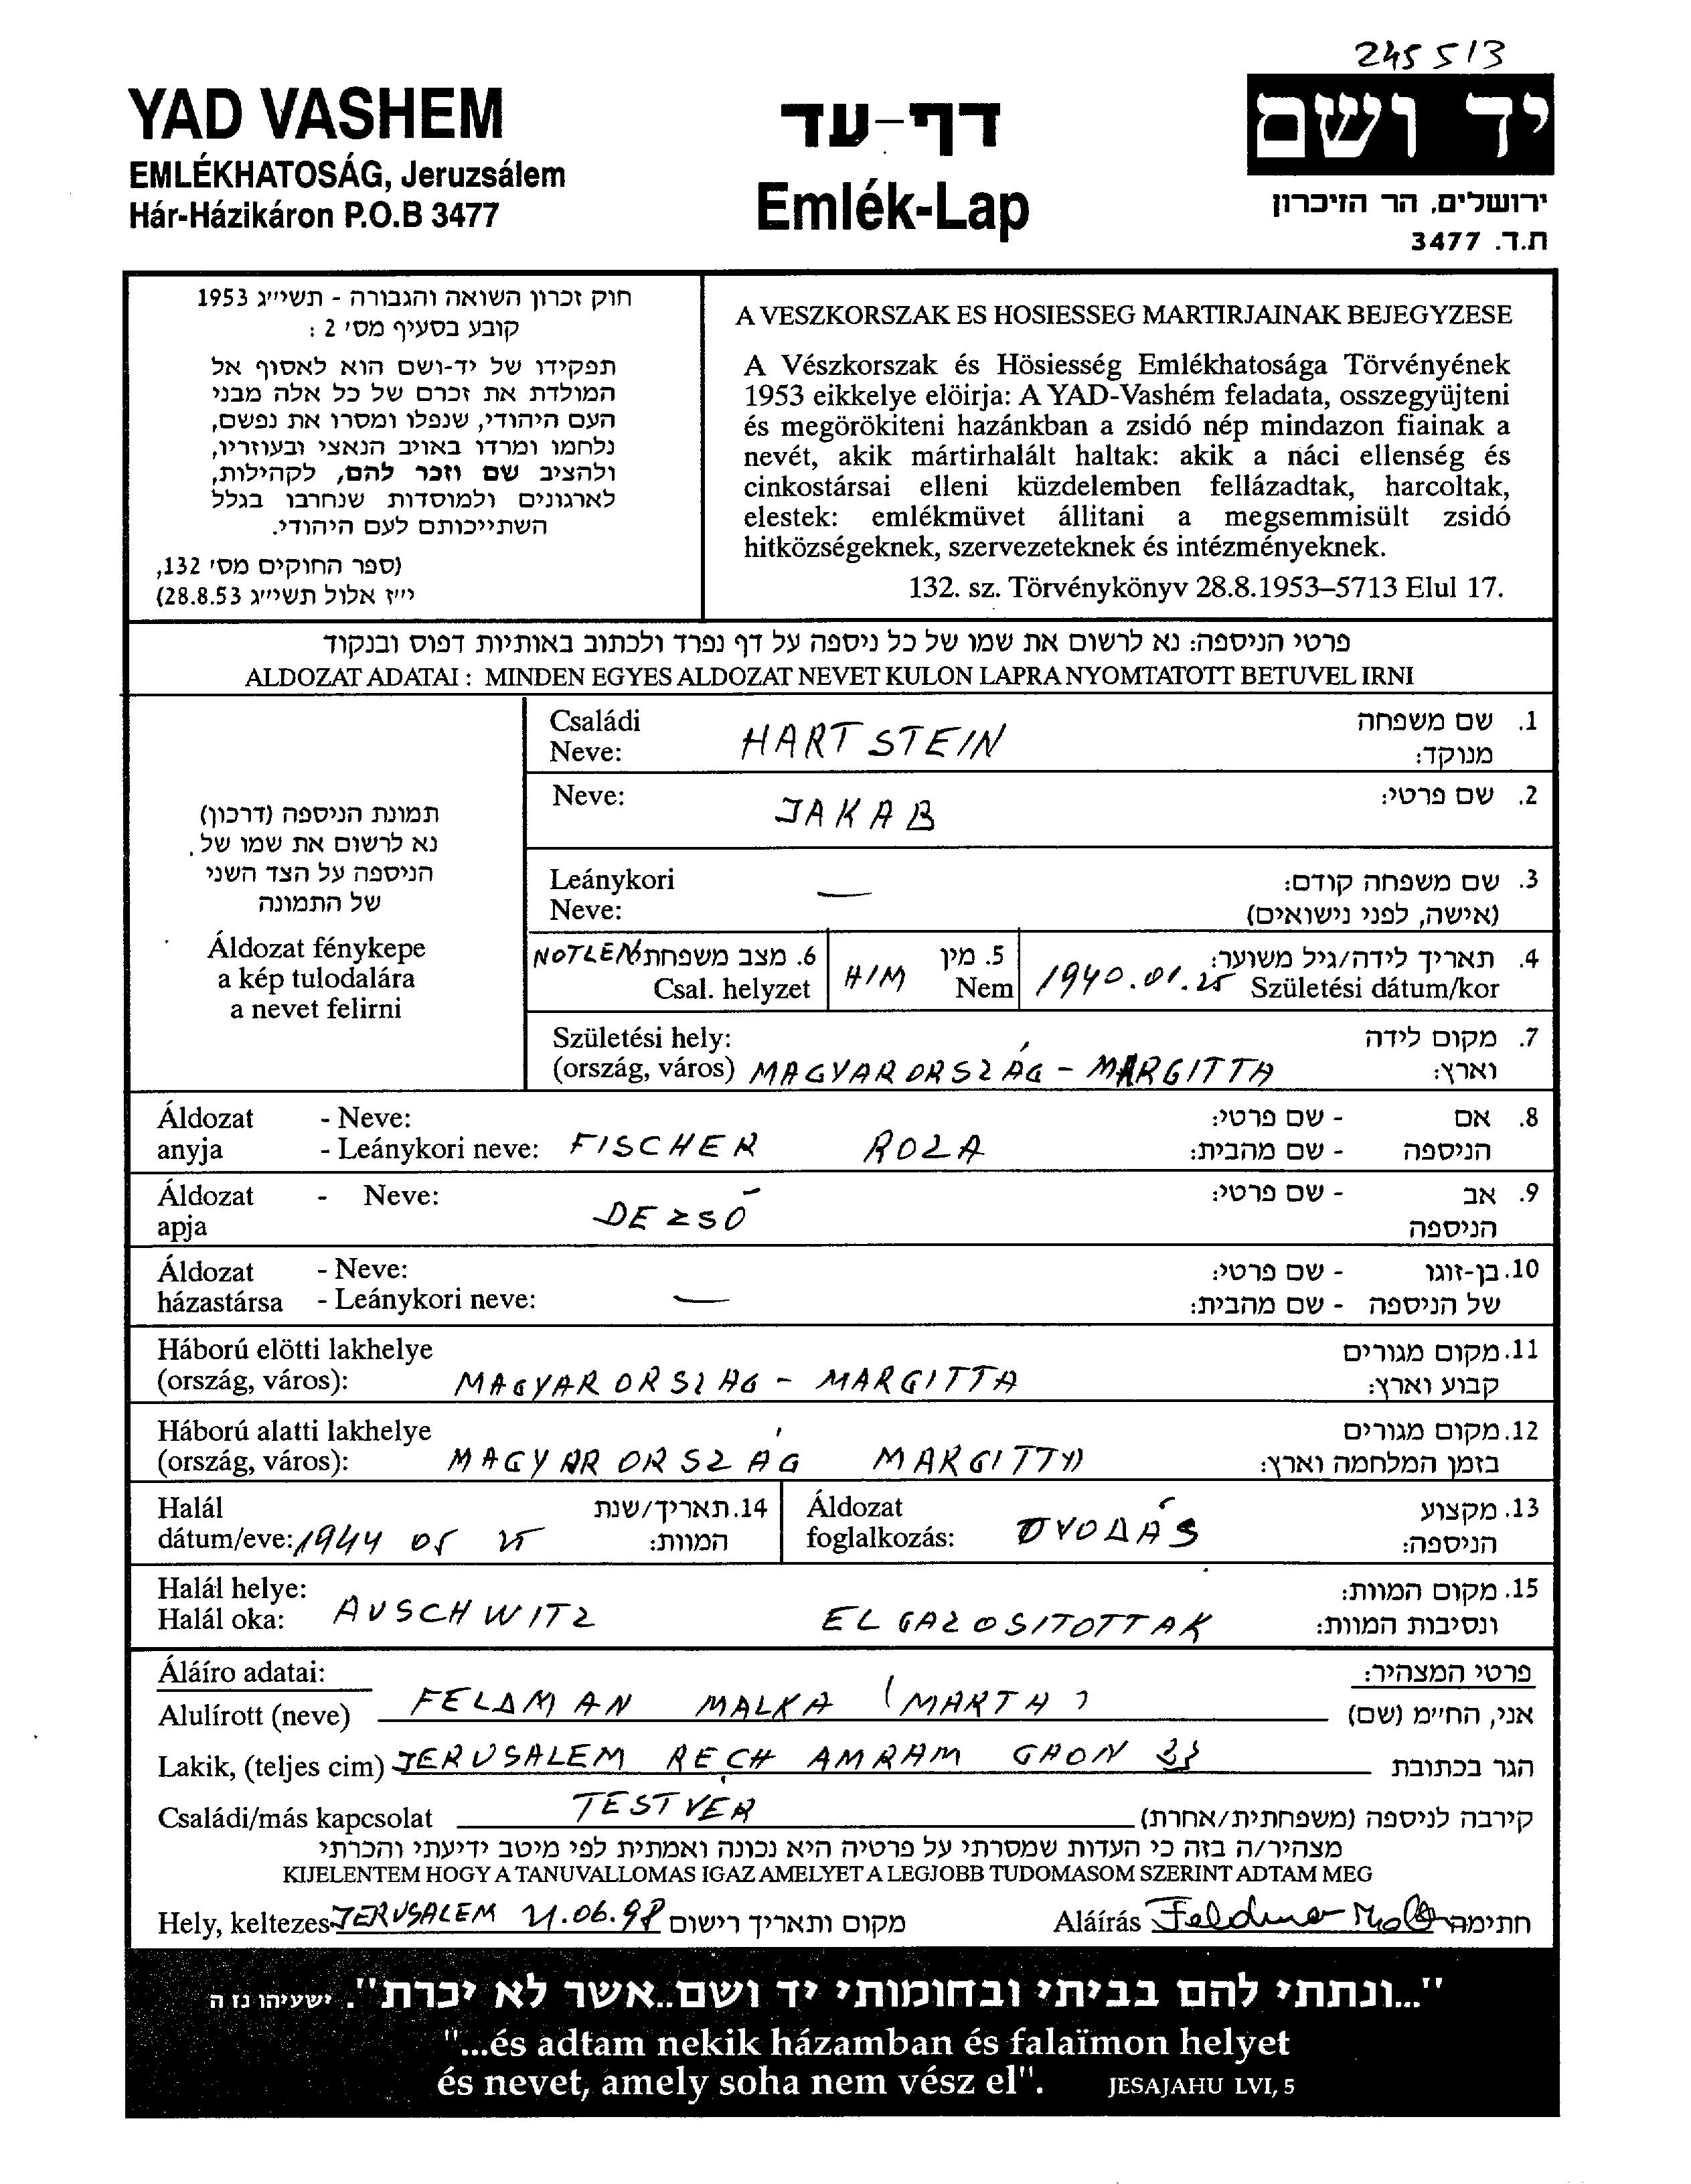 245513
YAD VASHEM
EMLÉKHATOSÁG, Jeruzsálem
Hár-Házikáron P.O.B 3477
דף-עד
Emlék-Lap
יד ושם
ירושלים, הר הזיכרון
ת.ד. 3477
חוק זכרון השואה והגבורה - תשי״ג 1953
קובע בסעיף מס׳ 2 :
תפקידו של יד-ושם הוא לאסוף אל
המולדת את זכרם של כל אלה מבני
העם היהודי, שנפלו ומסרו את נפשם,
נלחמו ומרדו באויב הנאצי ובעוזריו,
ולהציב שם וזכר להם, לקהילות,
לארגונים ולמוסדות שנחרבו בגלל
השתייכותם לעם היהודי.
(ספר החוקים מס׳ 132,
י״ז אלול תשי״ג 28.8.53)
A VESZKORSZAK ES HOSIESSEG MARTIRJAINAK BEJEGYZESE
A Vészkorszak és Hösiesség Emlékhatosága Törvényének
1953 eikkelye elöirja: A YAD-Vashém feladata, osszegyüjteni
és megörökiteni hazánkban a zsidó nép mindazon fiainak a
nevét, akik mártirhalált haltak: akik a náci ellenség és
cinkostársai elleni küzdelemben fellázadtak, harcoltak,
elestek: emlékmüvet állitani a megsemmisült zsidó
hitközségeknek, szervezeteknek és intézményeknek.
132. sz. Törvénykönyv 28.8.1953–5713 Elul 17.
פרטי הניספה: נא לרשום את שמו של כל ניספה על דף נפרד ולכתוב באותיות דפוס ובנקוד
ALDOZAT ADATAI : MINDEN EGYES ALDOZAT NEVET KULON LAPRA NYOMTATOTT BETUVEL IRNI
תמונת הניספה (דרכון)
נא לרשום את שמו של
הניספה על הצד השני
של התמונה
Áldozat fénykepe
a kép tulodalára
a nevet felirni
Családi
Neve: HARTSTEIN
1. שם משפחה
מנוקד:
Neve: JAKAB
2. שם פרטי:
Leánykori
Neve: —
3. שם משפחה קודם:
(אישה, לפני נישואים)
NOTLEN 6. מצב משפחתי
Csal. helyzet
HIM 5. מין
Nem
4. תאריך לידה/גיל משוער:
1940.01.25 Születési dátum/kor
Születési hely:
(ország, város) MAGYARORSZÁG - MARGITTA
7. מקום לידה
וארץ:
Áldozat - Neve:
anyja - Leánykori neve: FISCHER ROZA
8. אם - שם פרטי:
הניספה - שם מהבית:
Áldozat - Neve: DEZSŐ
apja
9. אב - שם פרטי:
הניספה
Áldozat - Neve:
házastársa - Leánykori neve: —
10. בן-זוגו - שם פרטי:
של הניספה - שם מהבית:
Háború elötti lakhelye
(ország, város): MAGYARORSZAG - MARGITTA
11. מקום מגורים
קבוע וארץ:
Háború alatti lakhelye
(ország, város): MAGYARORSZÁG MARGITTA
12. מקום מגורים
בזמן המלחמה וארץ:
Halál
dátum/eve: 1944 05 25
14. תאריך/שנת
המוות:
Áldozat
foglalkozás: OVODÁS
13. מקצוע
הניספה:
Halál helye:
Halál oka: AUSCHWITZ ELGAZOSITOTTAK
15. מקום המוות:
ונסיבות המוות:
Áláíro adatai:
פרטי המצהיר:
Alulírott (neve) FELDMAN MALKA (MARTA)
אני, החי״מ (שם)
Lakik, (teljes cim) JERUSALEM RECH AMRAM GAON
הגר בכתובת
Családi/más kapcsolat TESTVÉR
קירבה לניספה (משפחתית/אחרת)
מצהיר/ה בזה כי העדות שמסרתי על פרטיה היא נכונה ואמתית לפי מיטב ידיעתי והכרתי
KIJELENTEM HOGY A TANUVALLOMAS IGAZ AMELYET A LEGJOBB TUDOMASOM SZERINT ADTAM MEG
Hely, keltezes JERUSALEM 21.06.98 מקום ותאריך רישום
Aláírás Feldman Malka חתימה
"...ונתתי להם בביתי ובחומותי יד ושם..אשר לא יכרת". ישעיהו נו ה
"...és adtam nekik házamban és falaïmon helyet
és nevet, amely soha nem vész el". JESAJAHU LVI, 5